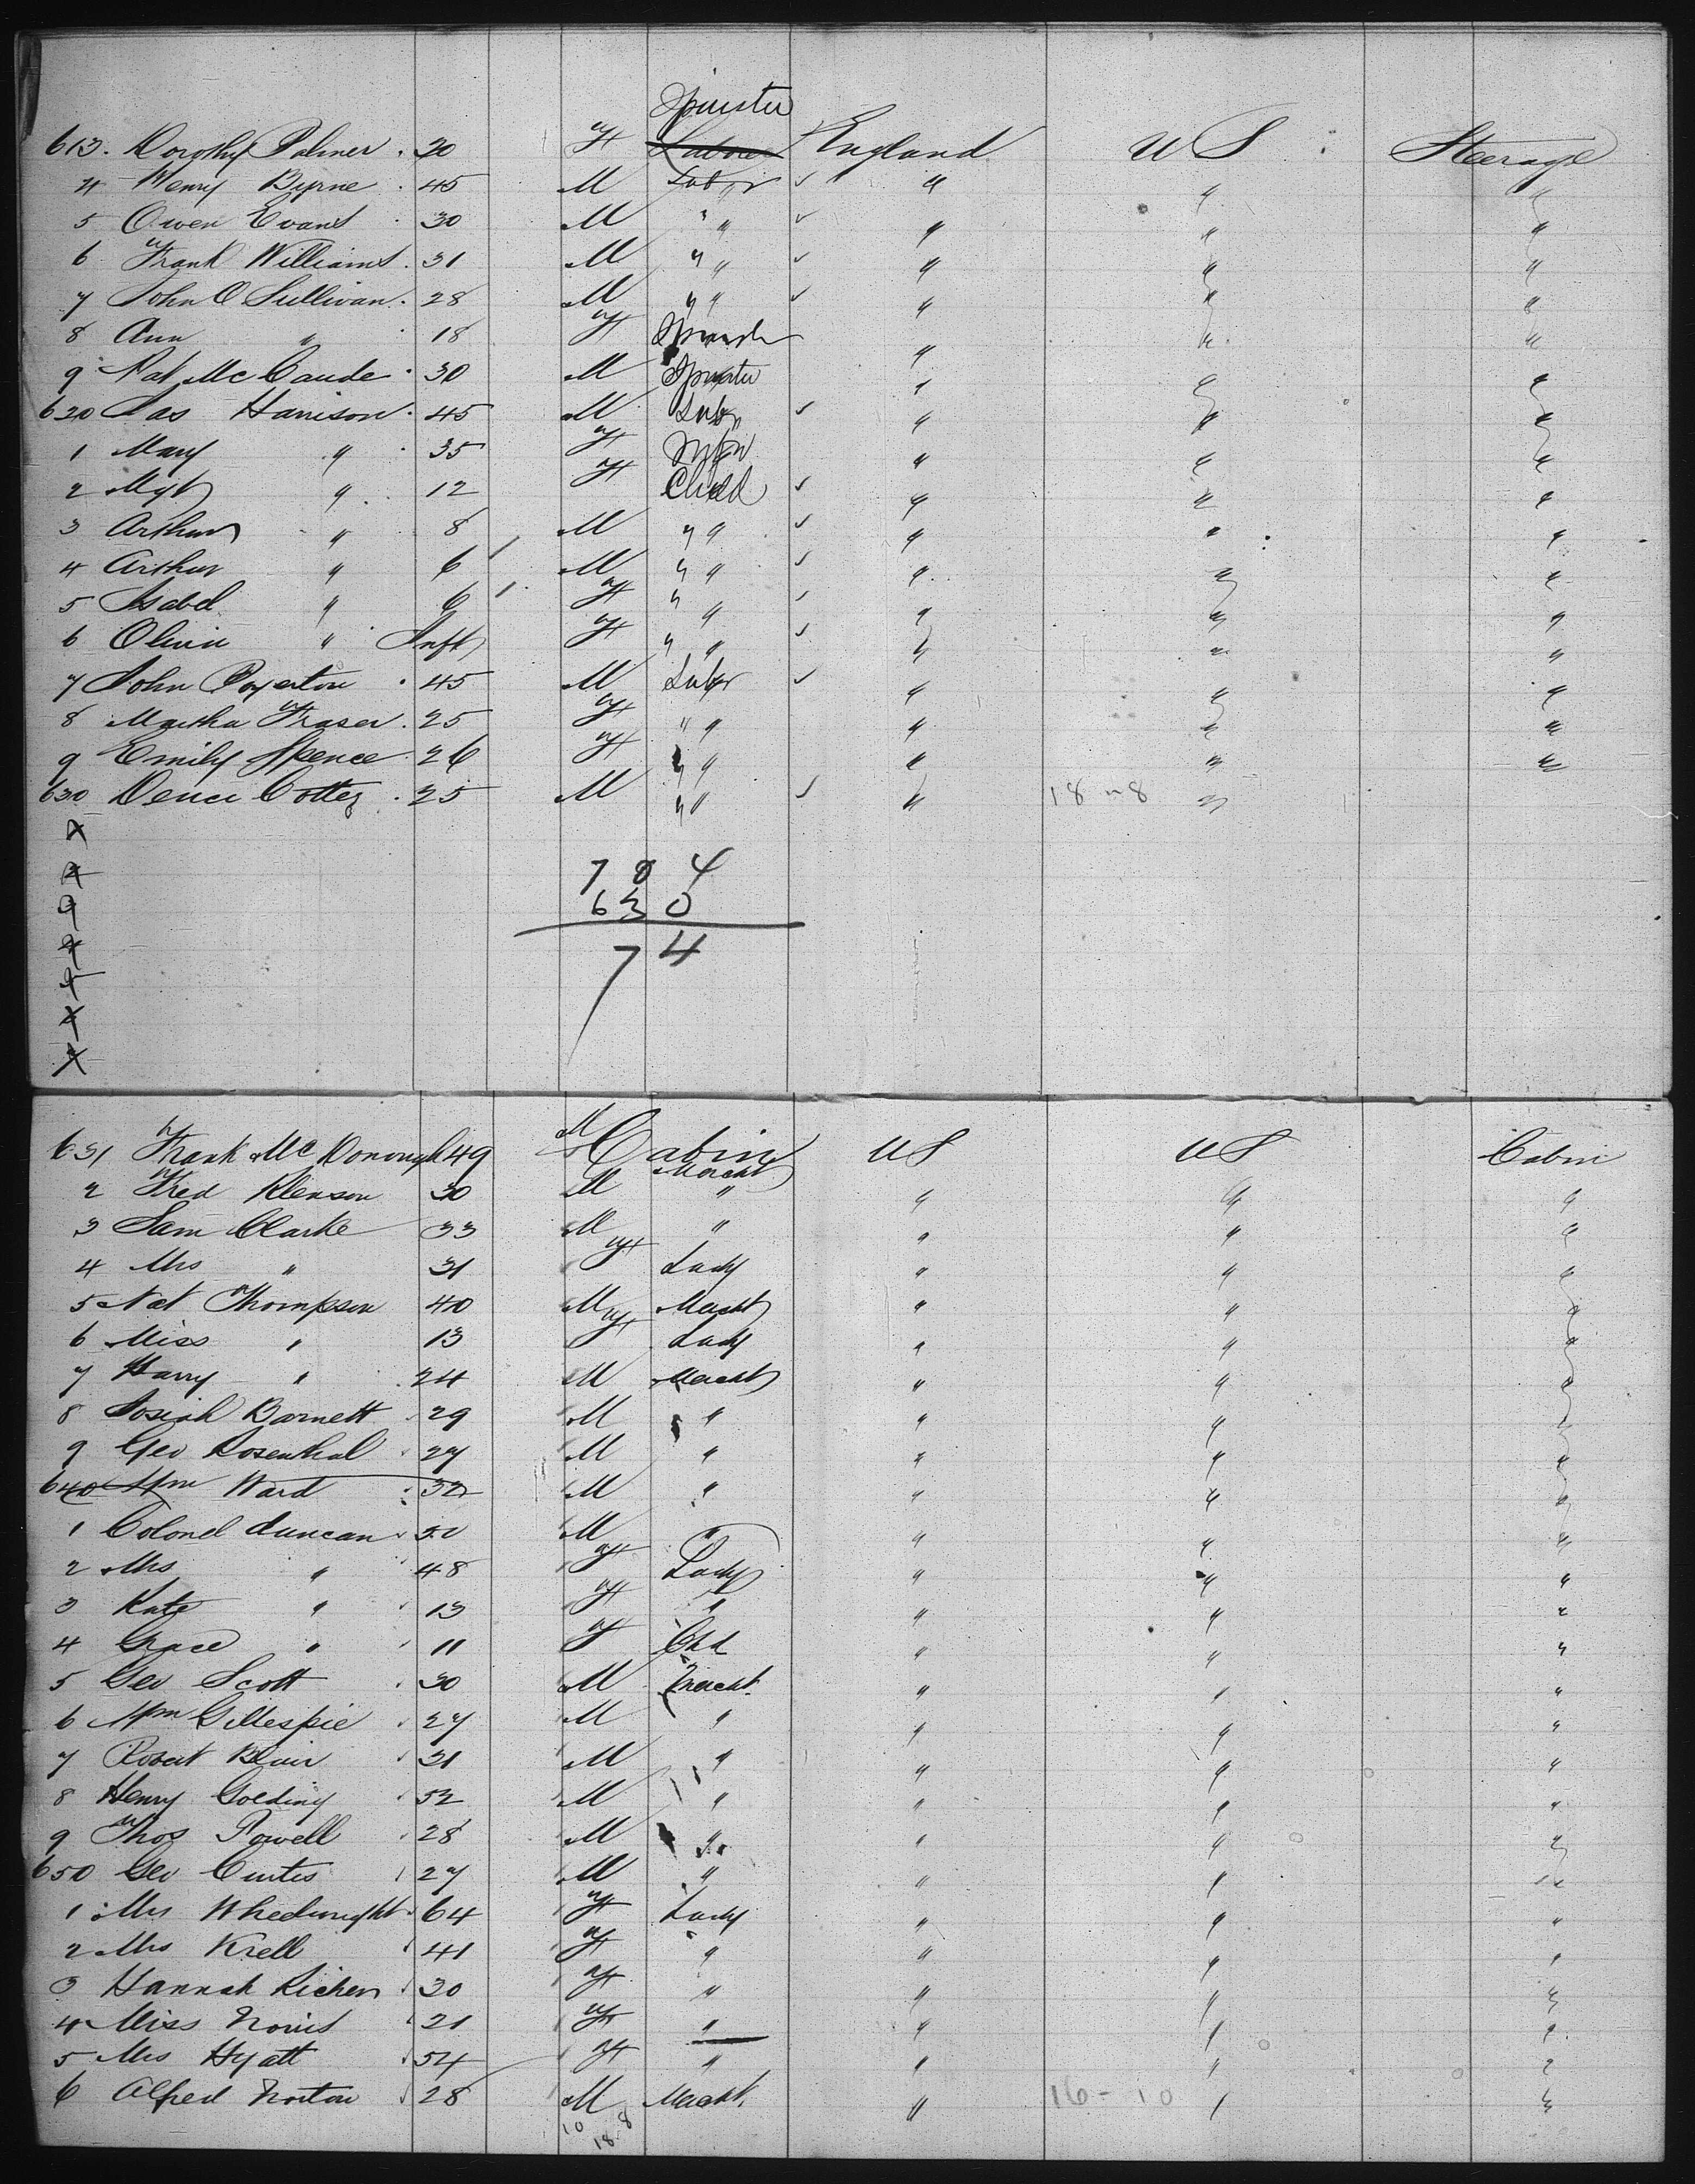 Spinster
613. Dorothy Palmer . 30 F Labor England US Steerage
4 Henry Byrne . 45 M Labor ✓ " " "
5 Owen Evans . 30 M " " ✓ " " "
6 Frank Williams . 31 M " " ✓ " " "
7 John O Sullivan . 28 M " " ✓ " " "
8 Ann " 18 F Spinster " " "
9 Pat Mc Caude . 30 M Spinster " " "
620 Jas Harrison . 45 M Labr ✓ " " "
1 Mary " . 35 F Wife " " "
2 Mgt " 12 F Child ✓ " " "
3 Arthur " 8 M " " ✓ " " "
4 Arthur " 6 M " " ✓ " " "
5 Isabel " 6 F " " ✓ " " "
6 Olivia " Inft F " " ✓ " " "
7 John . 45 M Labr ✓ " " "
8 Martha Fraser . 25 F " " " " "
9 Emily Spence . 26 F " " " " "
630 Cotter . 25 M " " ✓ " 18 - 8 "
704
630
74
631 Frank Mc Donough 49 M Cabin US US Cabin
Mercht
2 Fred 30 M " " " "
3 Sam Clarke 33 M " " " "
4 Mrs " 31 F Lady " " "
5 Nat Thompson 40 M Mercht " " "
6 Miss " 13 F Lady " " "
7 Harry " 24 M Mercht " " "
8 Josiah Barnett 29 M " " " "
9 Geo Rosenthal 27 M " " " "
640 Wm Ward 32 M " " " "
1 Colonel Duncan 50 M " " " "
2 Mrs " 48 F Lady " " "
3 Kate " 13 F " " " "
4 Grace " 11 F Chd " " "
5 Geo Scott 30 M Mercht. " " "
6 Wm Gillespie 27 M " " " "
7 Robert Blair 31 M " " " "
8 Henry Golding 52 M " " " "
9 Thos Powell 28 M " " " "
650 Geo Curtis 27 M " " " "
1 Mrs Wheelwright 64 F Lady " " "
2 Mrs Krell 41 F " " " "
3 Hannah 30 F " " " "
4 Miss Norris 21 F " " " "
5 Mrs Hyatt 54 F " " " "
6 Alfred Norton 28 M Mercht. " 16 - 10 " "
10 18-8